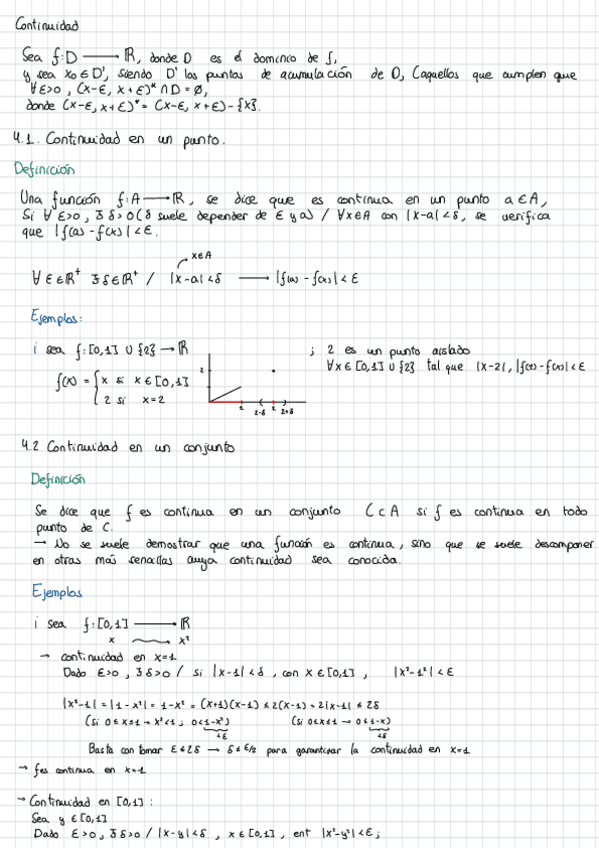 Continuidad
Sea f: D → ℝ, donde D es el dominio de f,
y sea x₀ ∈ D', siendo D' los puntos de acumulación de D, (aquellos que cumplen que
∀ε>0, (x-ε, x+ε)* ∩ D = ∅,
donde (x-ε, x+ε)* = (x-ε, x+ε) - {x}.
4.1. Continuidad en un punto.
Definición
Una función f: A → ℝ, se dice que es continua en un punto a ∈ A,
Si ∀ ε>0, ∃ δ>0 (δ suele depender de ε y a) / ∀x∈A con |x-a| < δ, se verifica
que |f(a) - f(x)| < ε.
x∈A
∀ ε∈ℝ⁺ ∃ δ∈ℝ⁺ / |x-a| < δ → |f(a) - f(x)| < ε
Ejemplos:
i sea f: [0,1] ∪ {2} → ℝ ; 2 es un punto aislado
∀x ∈ [0,1] ∪ {2} tal que |x-2|, |f(2) - f(x)| < ε
f(x) = { x si x ∈ [0,1]
2 si x=2
2
1 2-δ 2 2+δ
4.2 Continuidad en un conjunto
Definición
Se dice que f es continua en un conjunto C ⊂ A si f es continua en todo
punto de C.
→ No se suele demostrar que una función es continua, sino que se suele descomponer
en otras más sencillas cuya continuidad sea conocida.
Ejemplos
i sea f: [0,1] → ℝ
x ⟿ x²
→ continuidad en x=1
Dado ε>0, ∃ δ>0 / si |x-1| < δ, con x ∈ [0,1], |x²-1²| < ε
|x²-1| = |1-x²| = 1-x² = (x+1)(x-1) ≤ 2(x-1) = 2|x-1| ≤ 2δ
(si 0≤x≤1 → x²≤1; 0≤1-x²) (si 0≤x≤1 → 0≤1-x)
<ε <δ
Basta con tomar ε≤2δ → δ≤ε/2 para garantizar la continuidad en x=1
→ f es continua en x=1
→ Continuidad en [0,1]:
Sea y ∈ [0,1]
Dado ε>0, ∃ δ>0 / |x-y| < δ, x ∈ [0,1], ent |x²-y²| < ε;